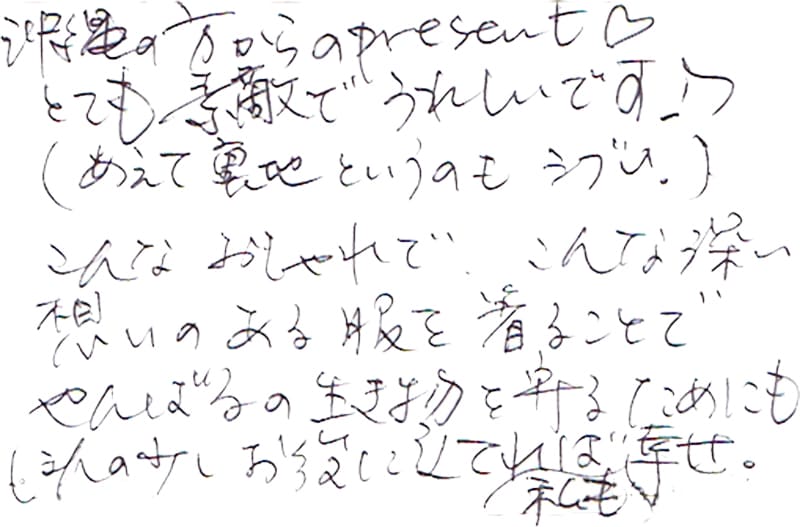 沖縄の方からのpresent♡
とても素敵でうれしいです!!
(あえて裏地というのもシブい。)
こんなおしゃれで、こんな深い
想いのある服を着ることで
やんばるの生き物を守るためにも
ほんの少しお役に立てれば幸せ。
私も